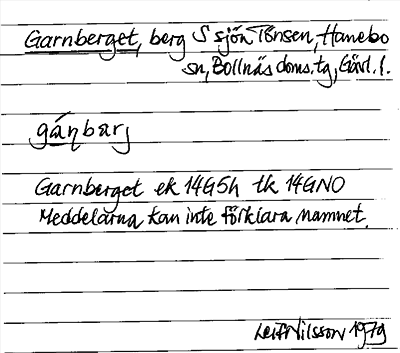 Garnberget, berg S sjön Tönsen, Hanebo
sn, Bollnäs doms. tg, Gävl. l.
gánbarj
Garnberget ek 14G5h tk 14GNO
Meddelarna kan inte förklara namnet.
Leif Nilsson 1979